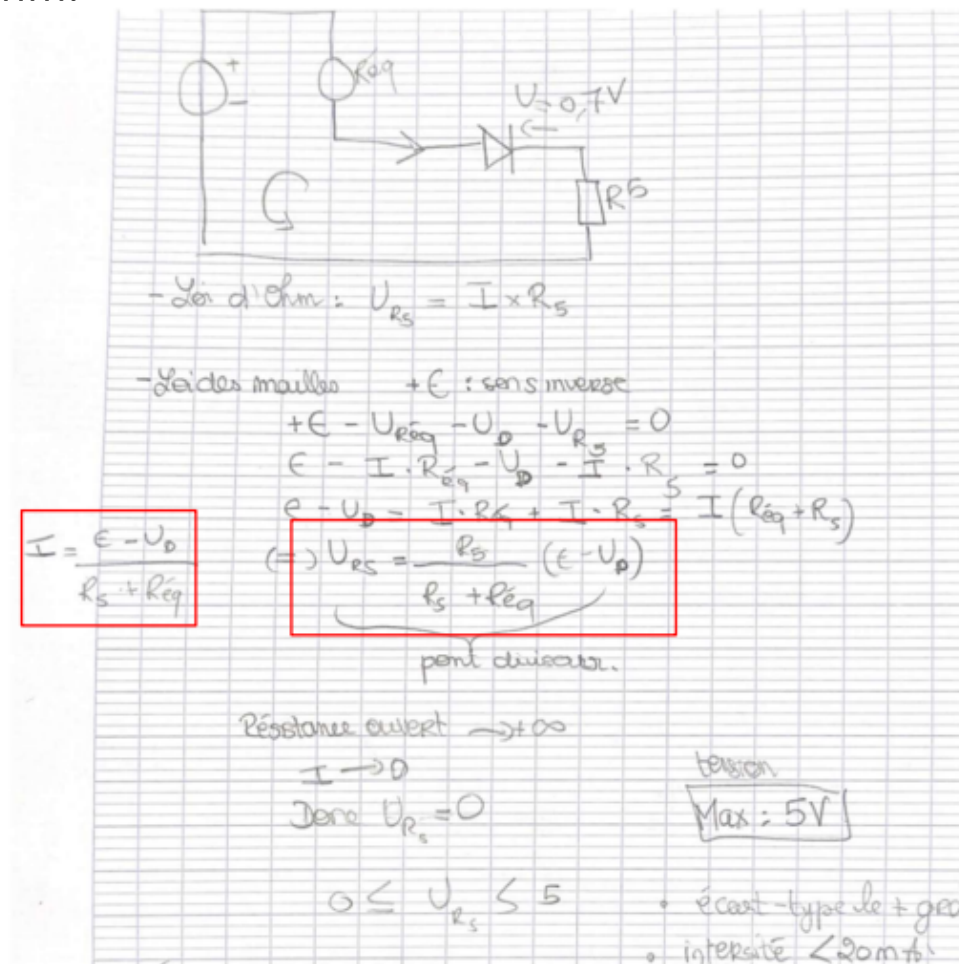 +
-
Réq
U=0,7V
R5
- Loi d'Ohm : U_R5 = I × R5
- Loi des mailles +E : sens inverse
+E - U_Réq - U_D - U_R5 = 0
E - I · R_éq - U_D - I · R_5 = 0
e - U_D = I · R_éq + I · R_5 = I (R_éq + R_5)
I = (E - U_D) / (R5 + Réq)
(=) U_R5 = R5 / (R5 + Réq) (E - U_D)
pont diviseur.
Résistance ouvert → +∞
I → 0
Donc U_R5 = 0
tension
Max : 5V
0 ≤ U_R5 ≤ 5
• écart-type le + gra
• intensité < 20mA.